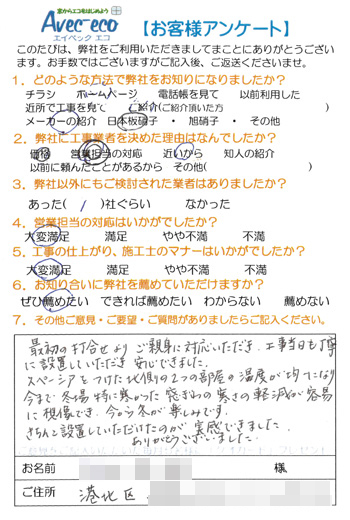 窓からエコをはじめよう
Avec-eco
エイベック エコ
【お客様アンケート】
このたびは、弊社をご利用いただきましてまことにありがとうござい
ます。お手数ではございますがご記入後、ご返送くださいませ。
1．どのような方法で弊社をお知りになりましたか？
チラシ ホームページ 電話帳を見て 以前利用した
近所で工事を見て ご紹介(ご紹介頂いた方 )
メーカーの紹介 日本板硝子 ・ 旭硝子 ・ その他
2．弊社に工事業者を決めた理由はなんでしたか？
価格 営業担当の対応 近いから 知人の紹介
以前に頼んだことがあるから その他( )
3．弊社以外にもご検討された業者はありましたか？
あった( / )社ぐらい なかった
4．営業担当の対応はいかがでしたか？
大変満足 満足 やや不満 不満
5．工事の仕上がり、施工士のマナーはいかがでしたか？
大変満足 満足 やや不満 不満
6．お知り合いに弊社を薦めていただけますか？
ぜひ薦めたい できれば薦めたい わからない 薦めない
7．その他ご意見・ご要望・ご質問がありましたらご記入ください。
最初の打合せより ご親身に対応いただき、工事当日も丁寧
に設置していただき 安心できました。
スペーシアをつけた北側の2つの部屋の温度が均一になり
今まで冬場 特に寒かった 窓ぎわの寒さの軽減が容易
に想像でき、今から冬が楽しみです。
きちんと設置していただけたのが 実感できました。
ありがとうございました。
お名前 様
ご住所 港北区